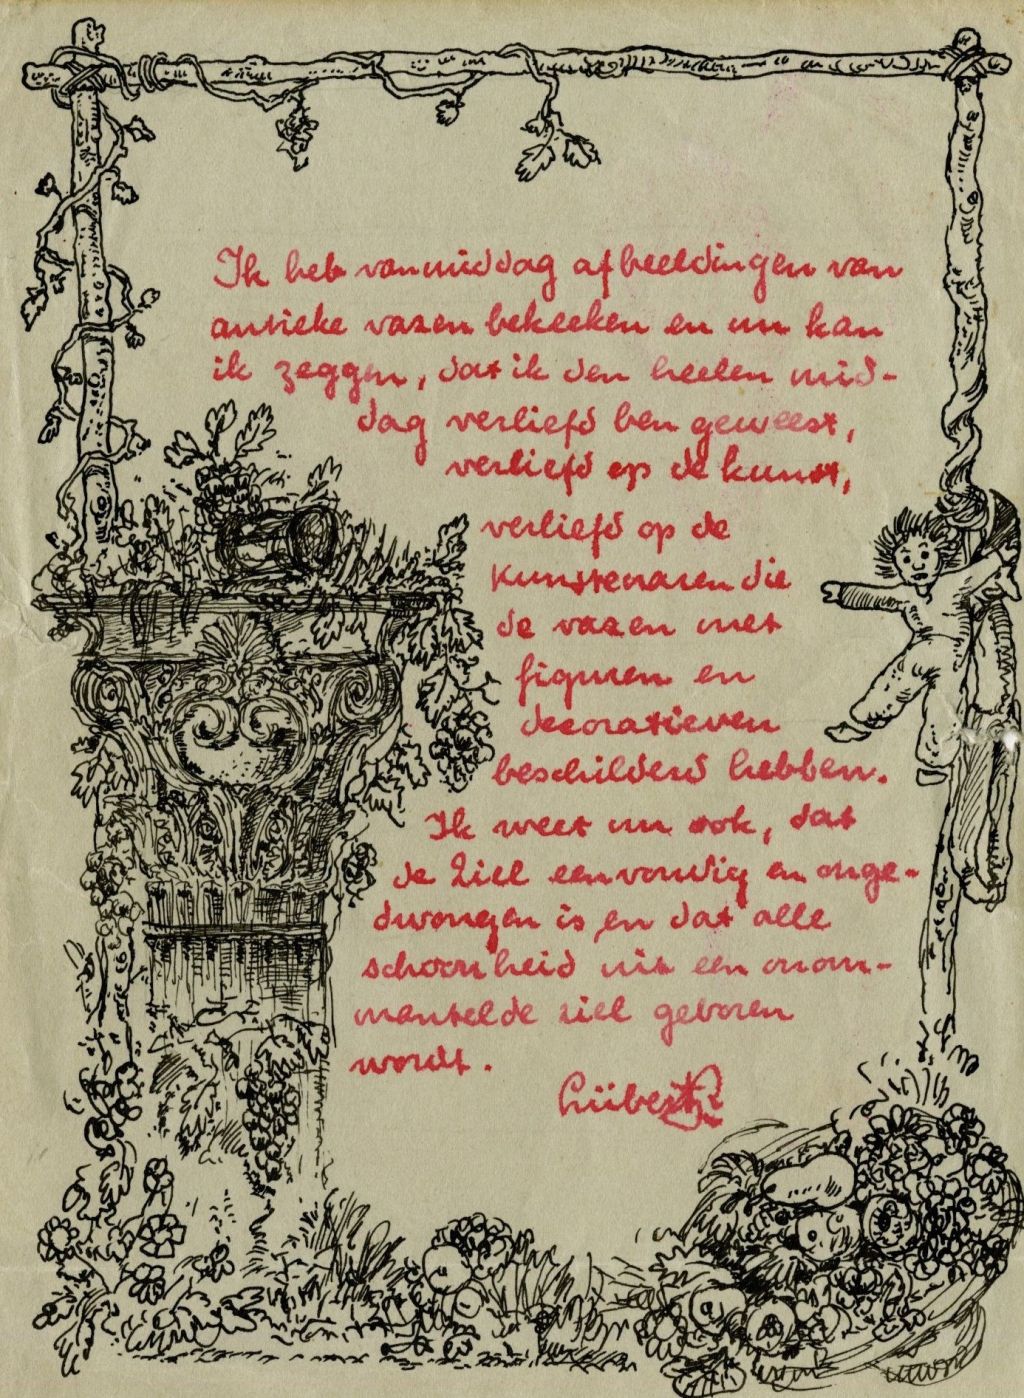 Ik heb vanmiddag afbeeldingen van
antieke vazen bekeeken en nu kan
ik zeggen, dat ik den heelen mid-
dag verliefd ben geweest,
verliefd op de kunst,
verliefd op de
kunstenaren die
de vazen met
figuren en
decoratieven
beschilderd hebben.
Ik weet nu ook, dat
de ziel eenvoudig en onge-
dwongen is en dat alle
schoonheid uit een onom-
mantelde ziel geboren
wordt.